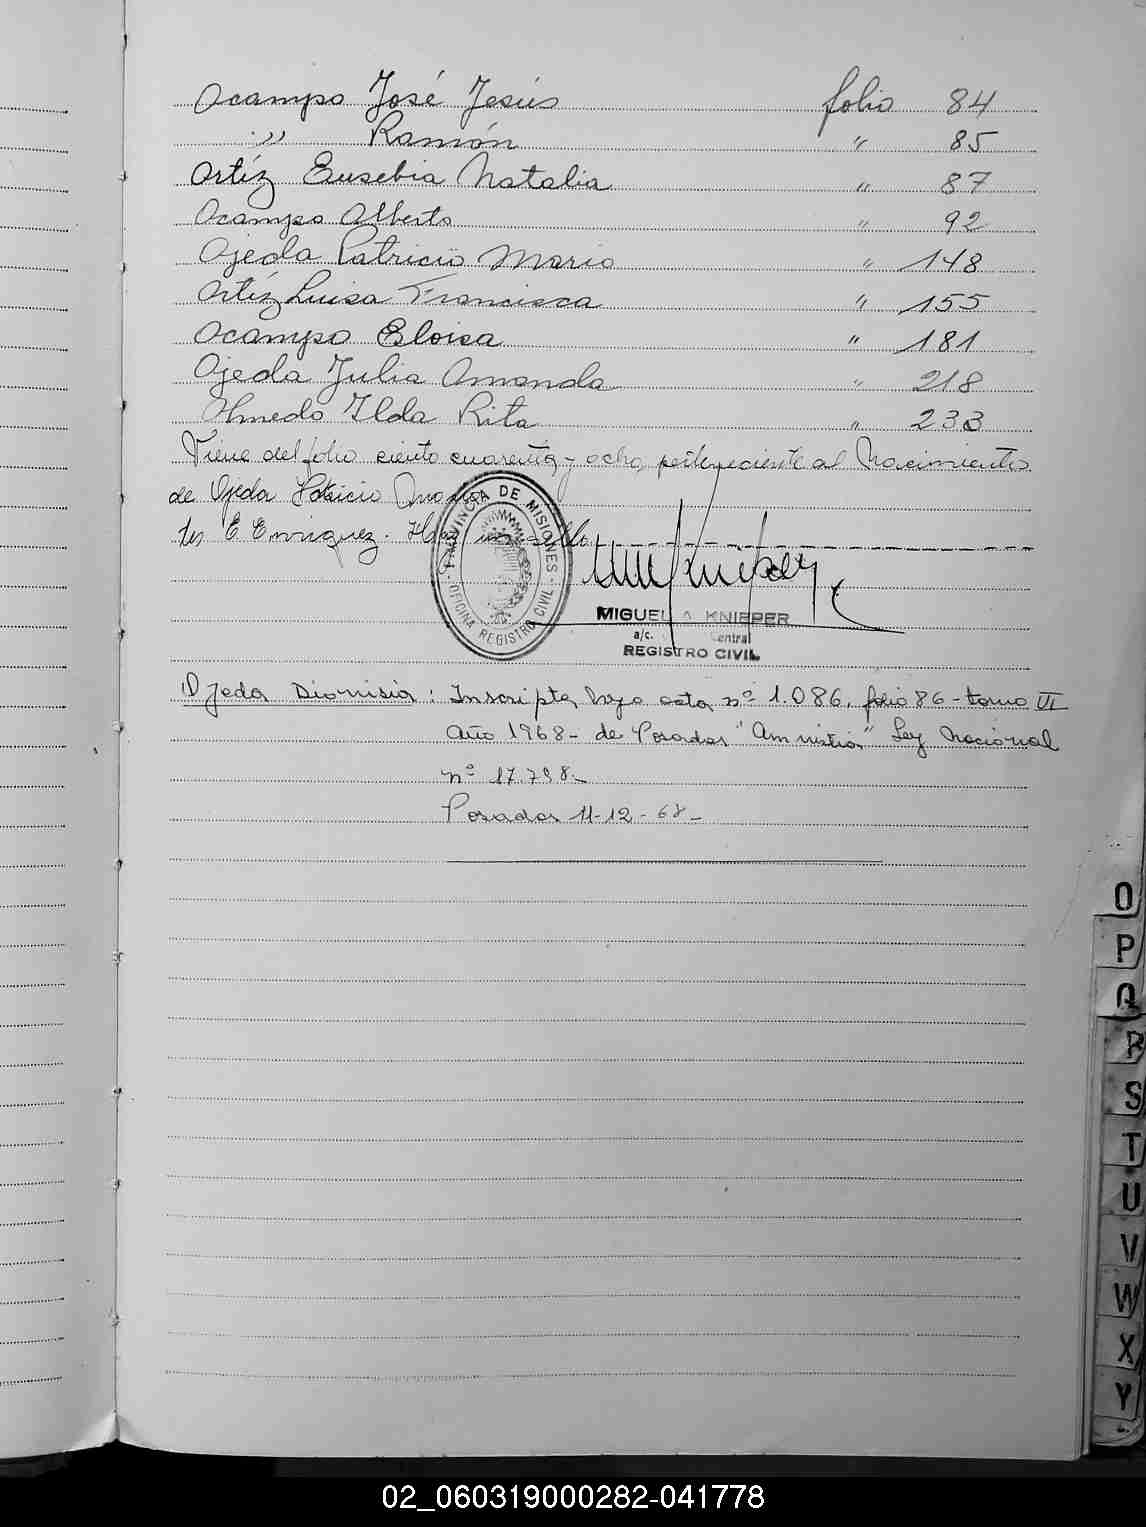 Ocampo José Jesús folio 84
" Ramón " 85
Ortíz Eusebia Natalia " 87
Ocampo Alberto " 92
Ojeda Patricio Mario " 148
Ortíz Luisa Francisca " 155
Ocampo Eloisa " 181
Ojeda Julia Amanda " 218
Olmedo Ilda Rita " 233
Viene del folio ciento cuarenta y ocho, perteneciente al Nacimiento
de Ojeda Patricio
E Enriquez. Hay un sello
PROVINCIA DE MISIONES
OFICINA REGISTRO CIVIL
MIGUEL A. KNIEPER
a/c. Central
REGISTRO CIVIL
Ojeda Dionisia: Inscripta bajo acta nº 1.086, folio 86 - tomo VI
Año 1968 - de Posadas "Amnistia" Ley Nacional
nº 17.798.-
Posadas 11-12-68-
O
P
Q
R
S
T
U
V
W
X
Y
02_060319000282-041778